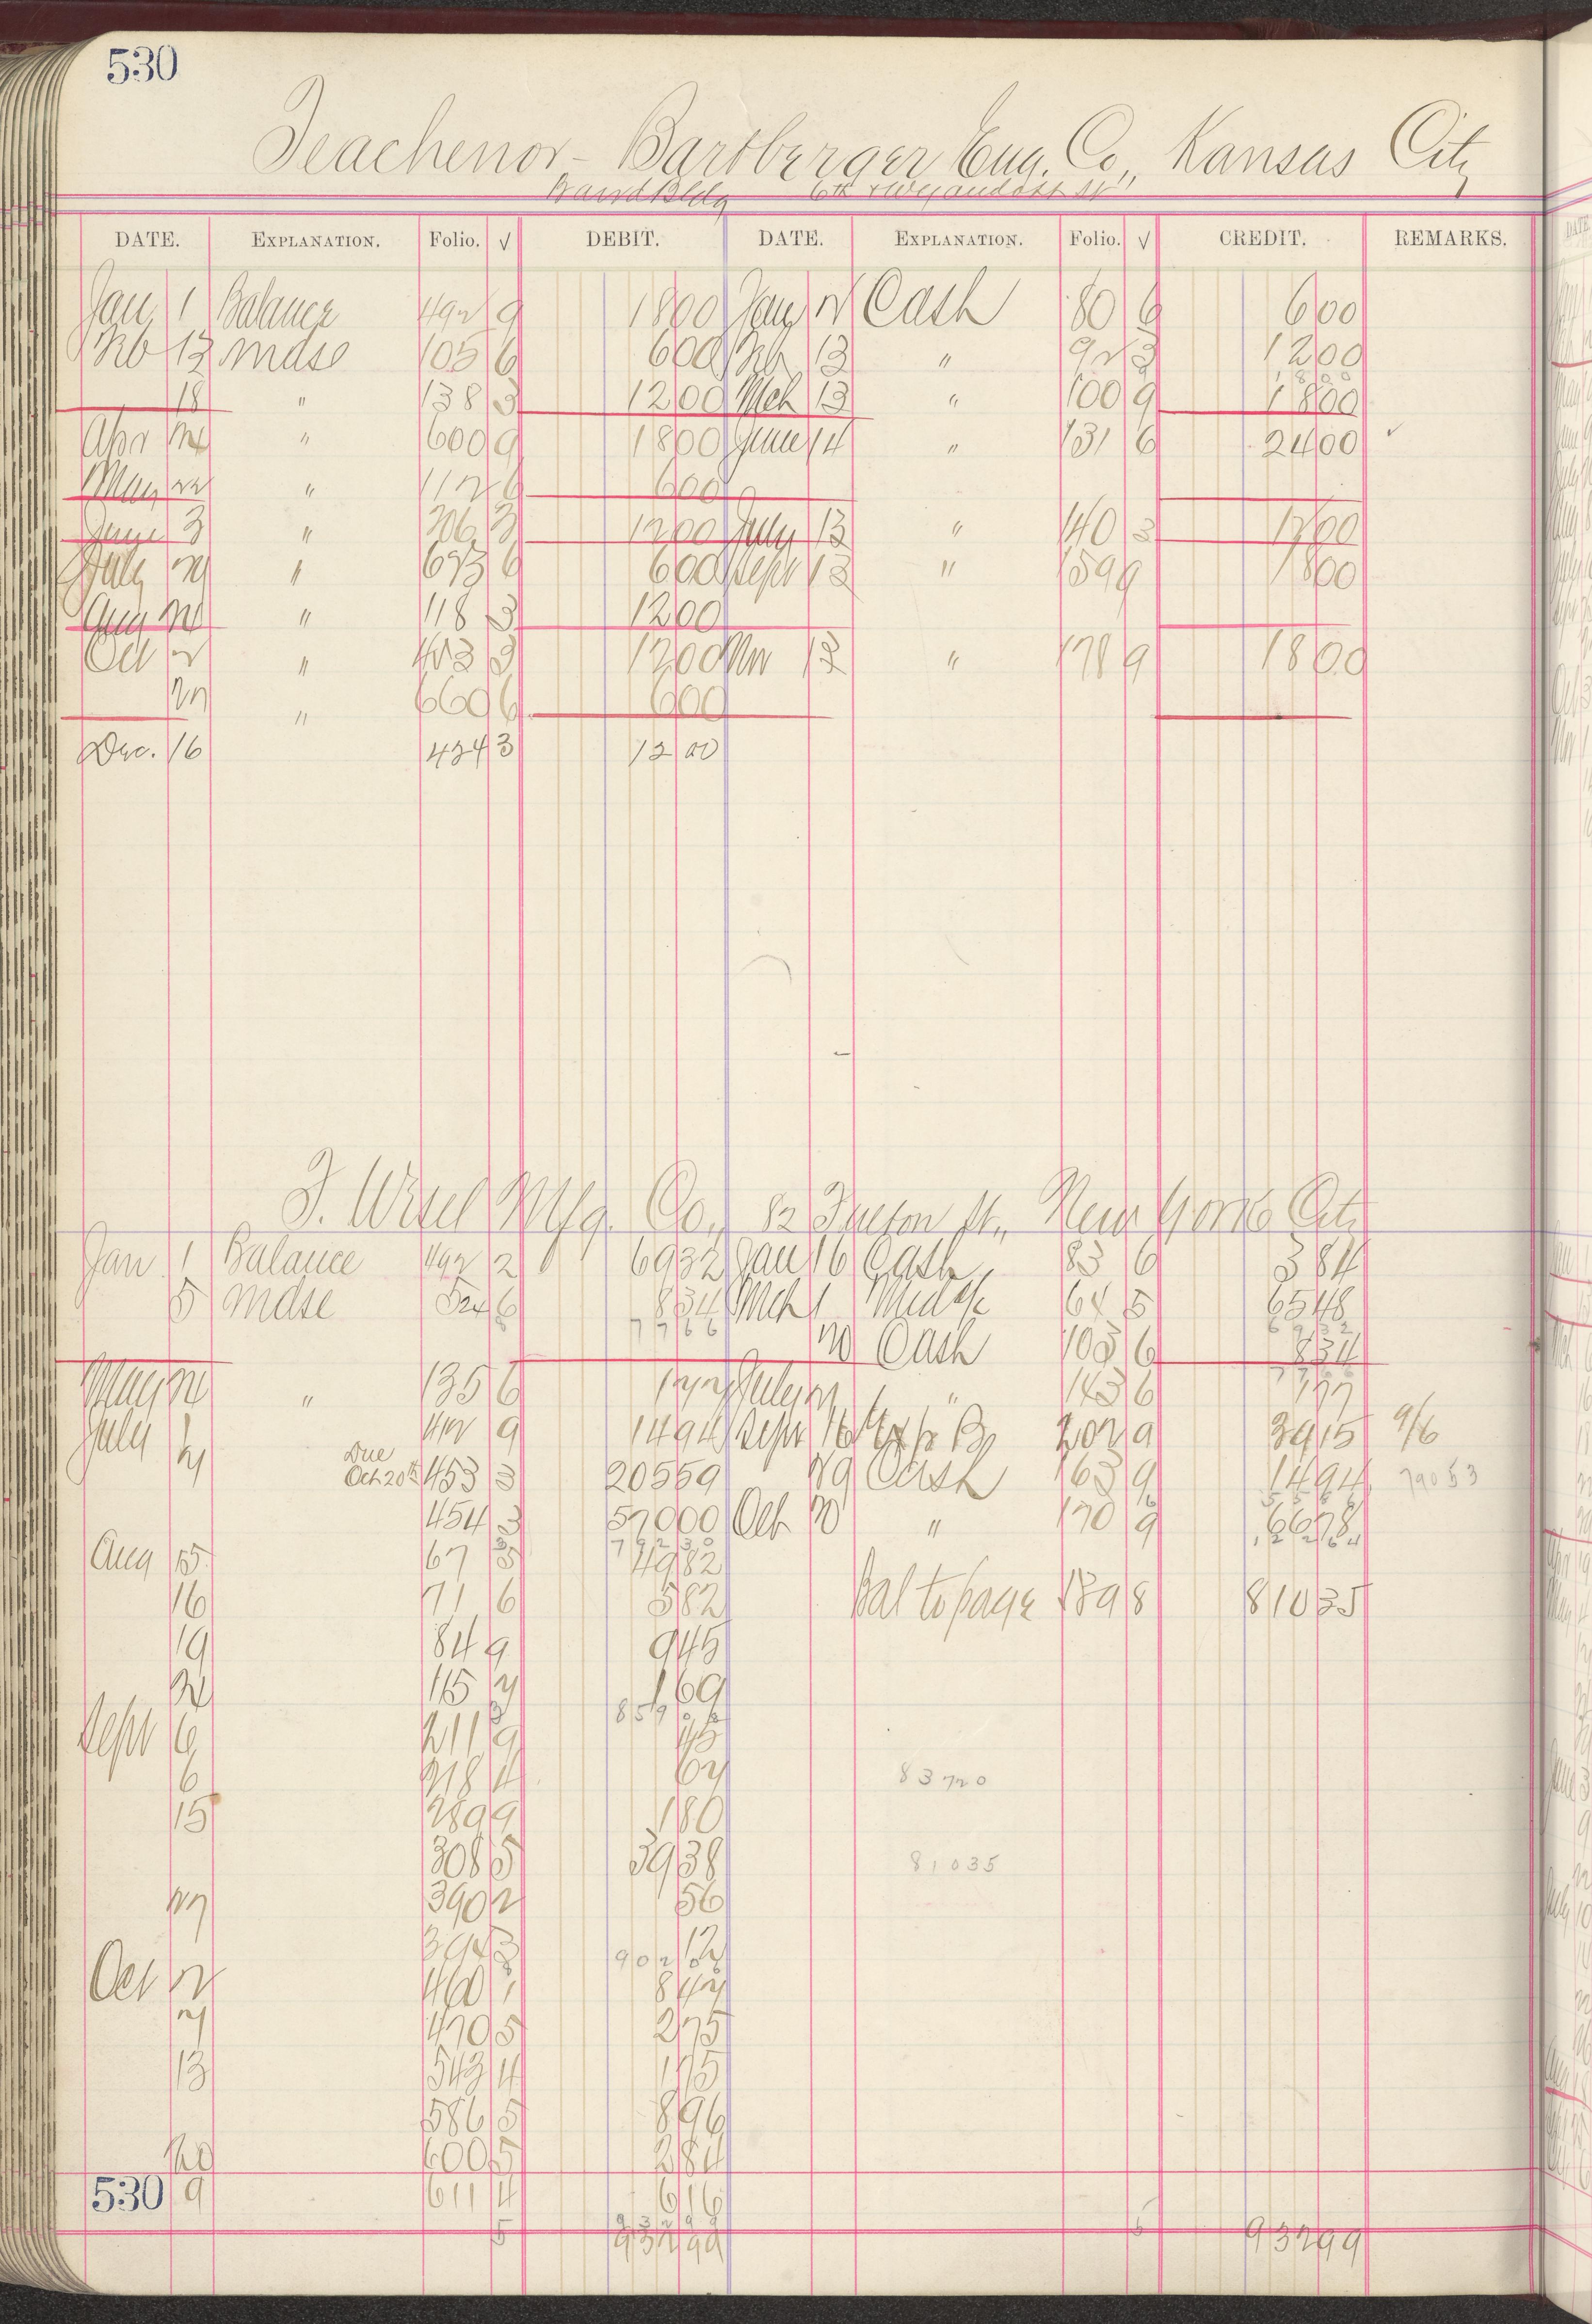 530
Teachenor-Bartberger Eng. Co., Kansas City
Baird Bldg 6th & Wyandott St
DATE. EXPLANATION. Folio. √ DEBIT. DATE. EXPLANATION. Folio. √ CREDIT. REMARKS.
Jan 1 Balance 492 9 1800 Jany Cash 80 6 600
Feb 13 Mdse 105 6 600 Feb 13 " 92 3 1200
18 " 138 3 1200 Mch 13 " 100 9 1800
Apr " 600 9 1800 June 14 " 131 6 2400 ✓
May 22 " 112 6 600
June 3 " 26 3 1200 July 13 " 140 3 1200
July 21 " 673 6 600 Sept 13 " 159 9 1800
Aug " 118 3 1200
Oct 2 " 403 3 1200 Nov 13 " 178 9 1800
27 " 660 6 600
Dec. 16 434 3 1200
F. Wesel Mfg. Co., 82 Fulton St., New York City
Jan 1 Balance 492 2 6932 Jan 16 Cash 83 6 384
5 Mdse 52 6 834 Mch 1 Mdse 64 5 6548
7766 6932
20 Cash 105 6 834
May " 135 6 177 July " 143 6 177
July 412 9 1494 Sept 16 202 9 3915 9/6
Due
Oct 20th 453 3 20559 29 Cash 163 9 1494 79053
454 3 57000 Oct 20 " 170 9 6678
Aug 15 67 5 4982
16 71 6 582 Bal to page 189 8 81035
19 84 9 945
115 169
Sept 6 211 9 45
6 218 4 64 83720
15 289 9 180
308 5 3938 81035
27 390 2 56
394 3 12
Oct 2 460 1 844
470 5 275
13 543 4 175
586 5 896
20 600 5 284
530 9 611 4 616
5 93299 6 93299